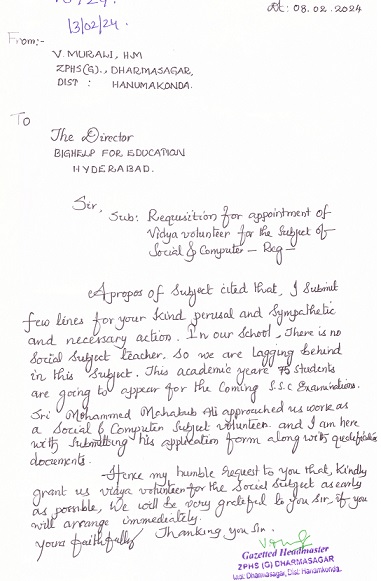 13/02/24.
Dt: 08.02.2024
From:-
V. MURALI, H.M
ZPHS(G)., DHARMASAGAR,
DIST : HANUMAKONDA.
To
The Director
BIGHELP FOR EDUCATION
HYDERABAD.
Sir,
Sub: Requisition for appointment of
Vidya volunteer for the Subject of
Social & Computer – Reg –
Apropos of Subject cited that, I Submit
few lines for your kind perusal and Sympathetic
and necessary action. In our School, There is no
Social Subject teacher. So we are lagging behind
in this Subject. This academic yeare 75 Students
are going to appear for the Coming S.S.C Examinations.
Sri Mohammed Mahabub Ali approached us work as
a Social & Computer Subject volunteer. and I am here
with Submitting his application form along with
documents.
Hence my humble request to you that, kindly
grant us vidya volunteer for the Social Subject as early
as possible, We will be very grateful to you Sir, if you
will arrange immediately.
Yours faithfully Thanking you Sir.
Gazetted Headmaster
ZPHS (G) DHARMASAGAR
Dharmasagar, Dist: Hanamkonda.